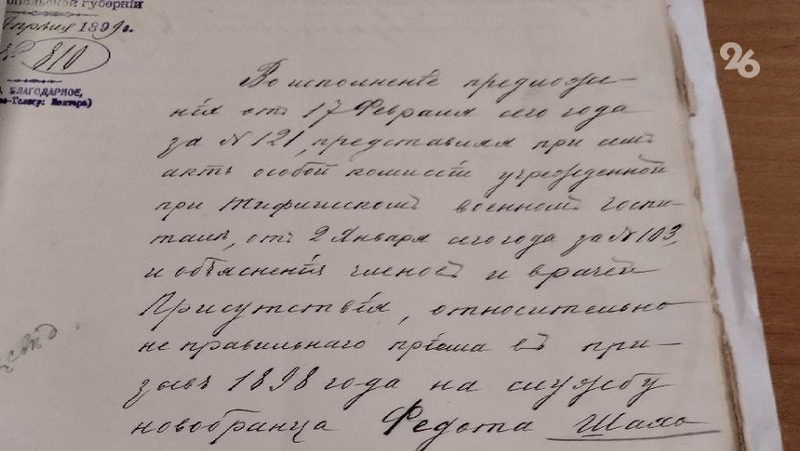 опольской губерніи
1899 г.
№ 810
БЛАГОДАРНОЕ,
26
Во исполненіе предложе-
нія отъ 17 Февраля сего года
за № 121, представляя при семъ
актъ особой комисіи учрежденной
при Тифлисскомъ военномъ госпи-
талѣ, отъ 2 Января сего года за № 103,
и объясненія членовъ и врачей
Присутствія, относительно
неправильнаго пріема въ при-
зывъ 1898 года на службу
новобранца Федота Шапо